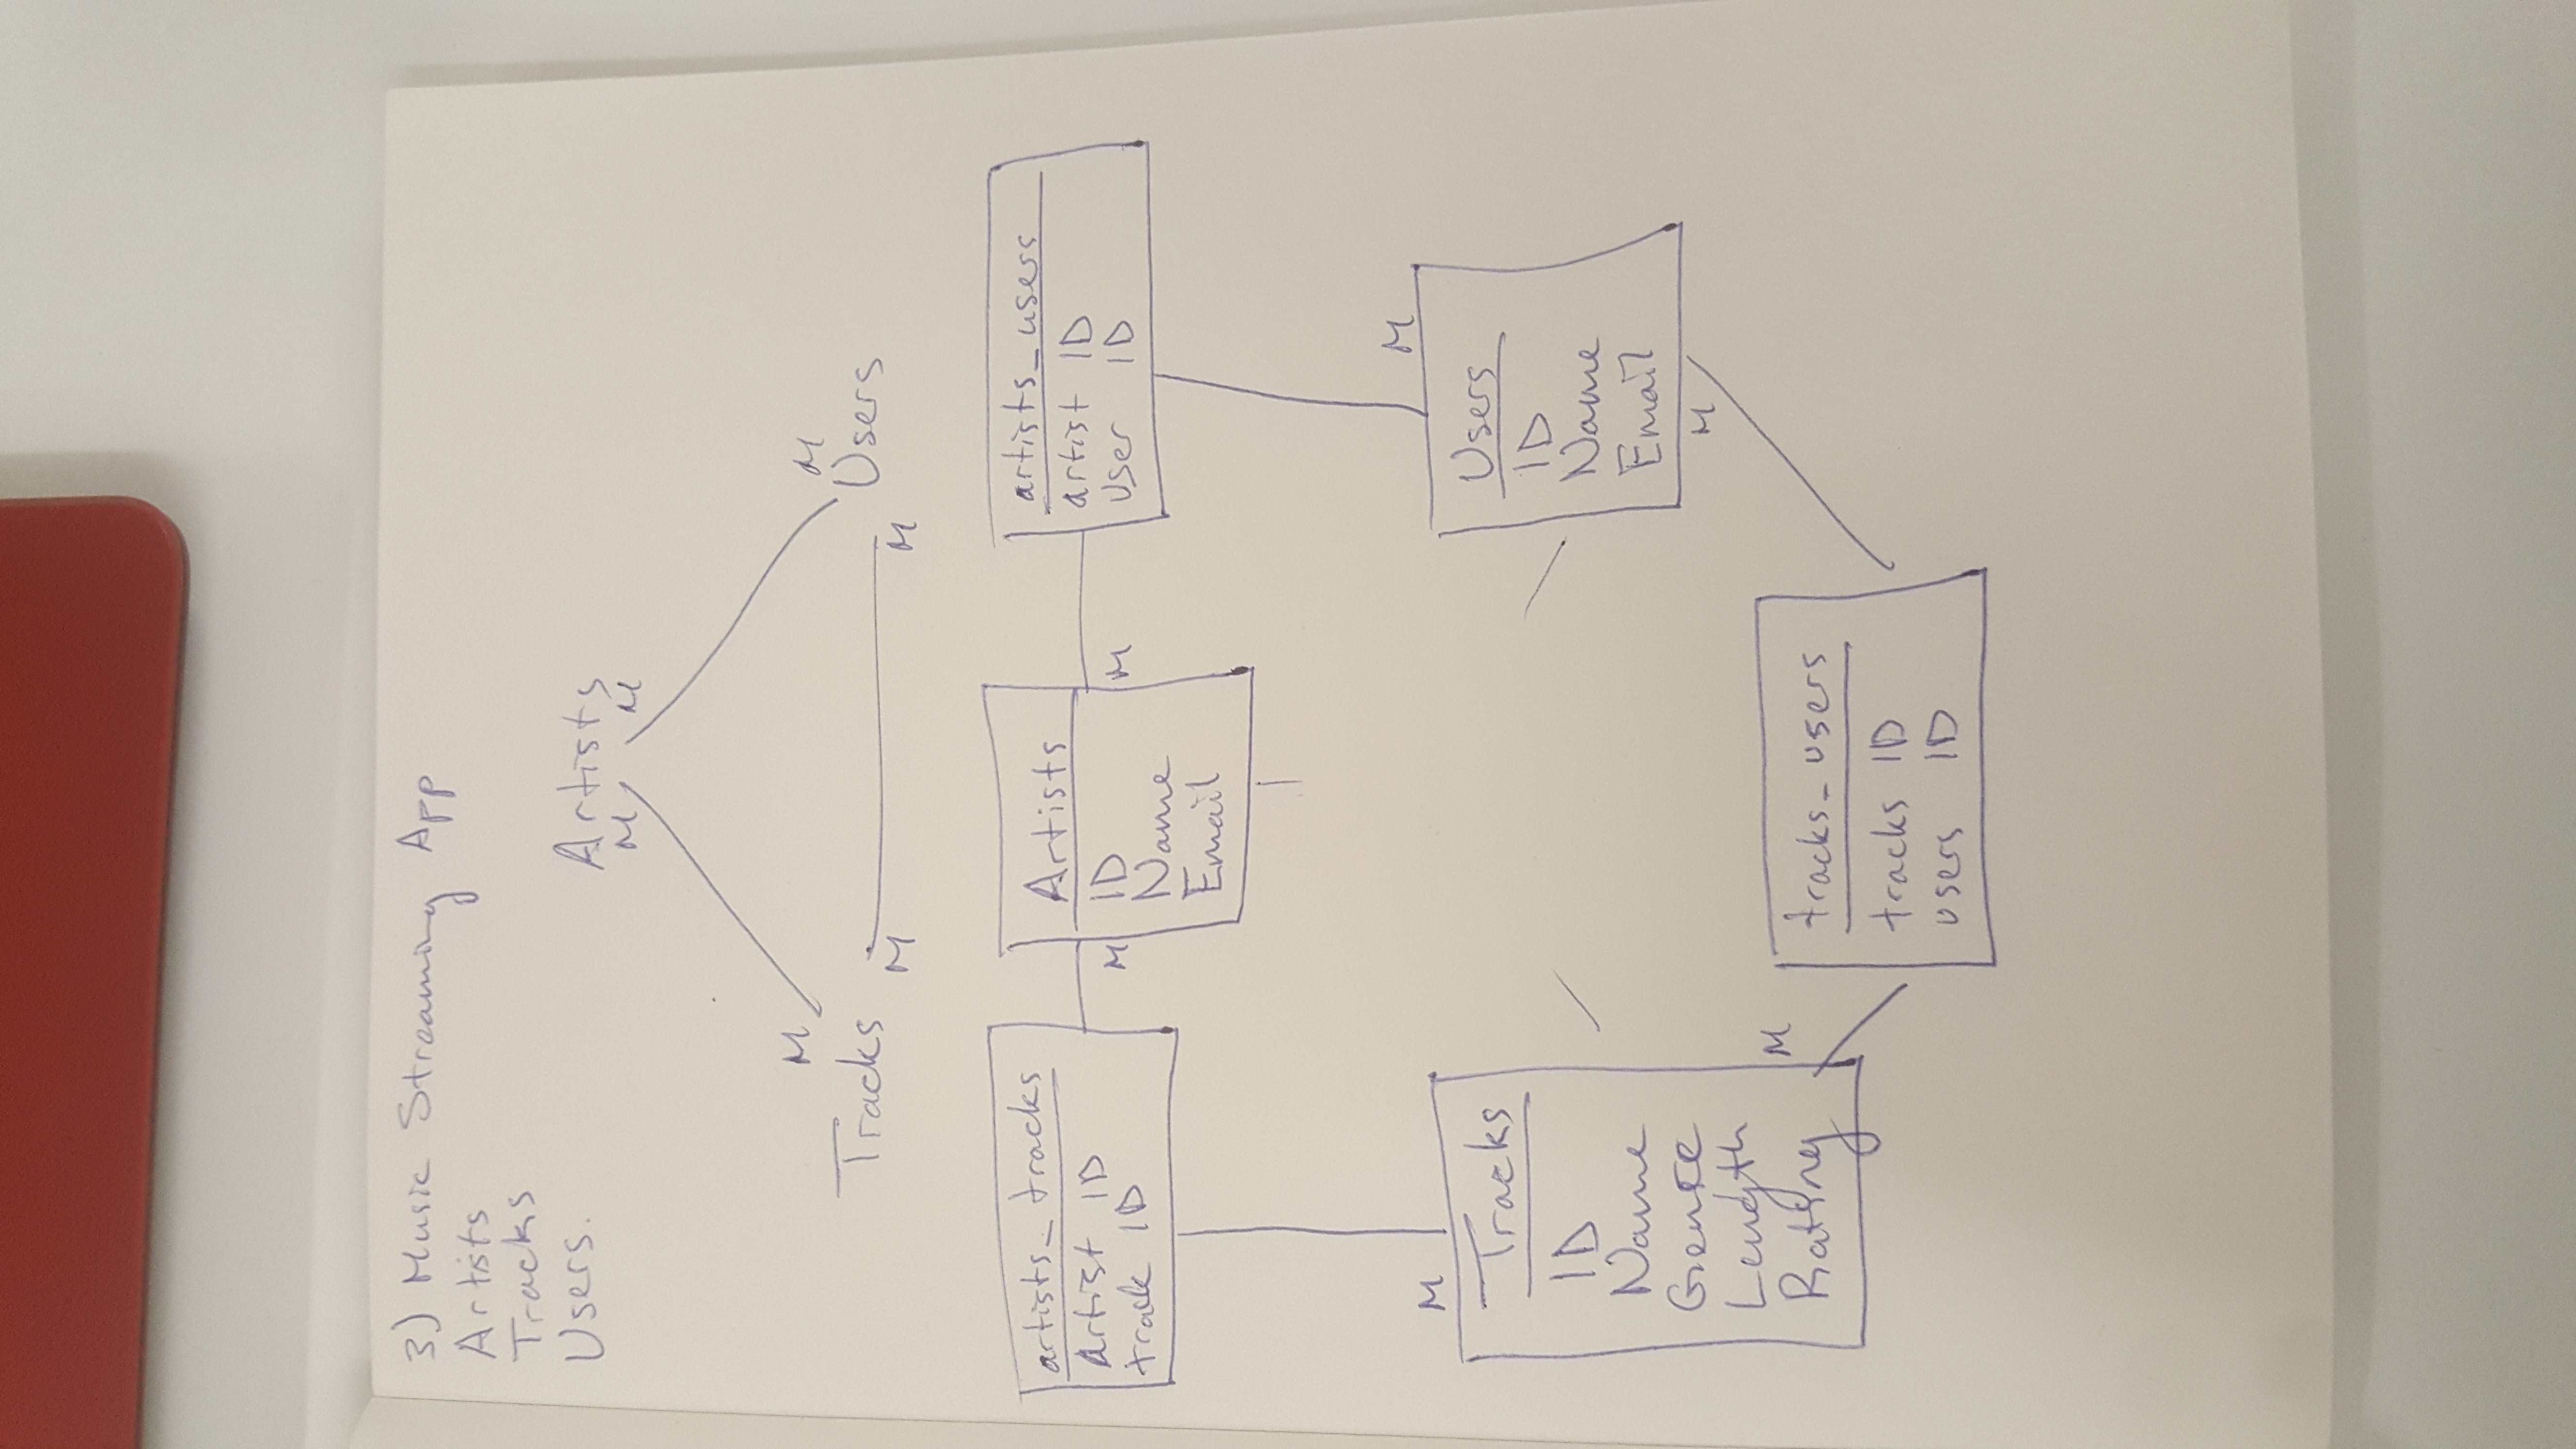 3) Music Streaming App
Artists
Tracks
Users.
Artists
M M
M
M
Tracks
Users
M M
artists_tracks
Artist ID
track ID
M
Artists
ID
Name
Email
M
artists_users
artist ID
user ID
M
Tracks
ID
Name
Genre
Length
Rating
M
M
Users
ID
Name
Email
M
tracks_users
tracks ID
users ID